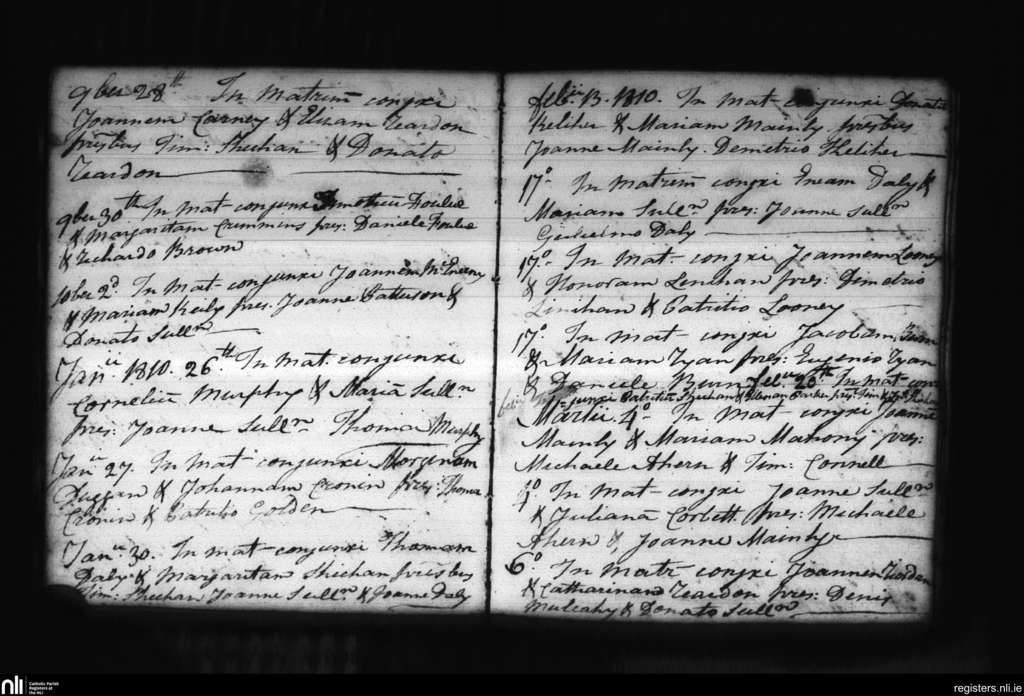 9ber 28th In Matrim congxi
Joannem Carney & Elizam Reardon
presbus Tim: Sheehan & Donato
Reardon
9ber 30th In Mat conjunxi Timotheu Foulue
& Margaritam Crummins pres: Daniele Foulue
& Richardo Brown
10ber 2d. In Mat conjunxi Joannem
& Mariam Keily pres. Joanne Patterson &
Donato Sulln
Janii 1810. 26th In Mat. conjunxi
Corneliu Murphy & Mariā Sulln
pres: Joanne Sulln Thoma Murphy
Janii 27. In Mat conjunxi
Duggan & Johannam Cronin pres: Thoma
Cronin & Patritio Golden
Janii 30. In Mat conjunxi Thomam
Daly & Margaritan Shiehan presbus
Tim: Shiehan Joanne Sulln & Joanne Daly
febii 13. 1810. In Mat conjunxi Donatu
Keliher & Mariam Mainly presbus
Joanne Mainly. Demetrio Keliher
17o In Matrim congxi Daly &
Mariam Sulln pres: Joanne Sulln
Gulielmo Daly
17o In Mat congxi Joannem Looney
& Honoram Lenihan pres: Dimetrio
Linihan & Patritio Looney
17o In Mat congxi Jacobam
& Mariam Ryan pres: Eugenio Ryan
& Daniele Burn febii 20th In Mat con
junxi Patritiu Shiehan & Parker pres: Tim &
Martii. 4o In Mat congxi Joanne
Mainly & Mariam Mahony pres:
Michaele Ahern & Tim: Connell
4o In Mat congxi Joanne Sulln
& Julianā Corbett. pres: Michaele
Ahern & Joanne Mainly
6o In Matr congxi Joannem Riordan
& Catharinam Reardon pres: Denis
Mulcahy & Donato Sulln
nli
Catholic Parish
Registers at
the NLI
registers.nli.ie